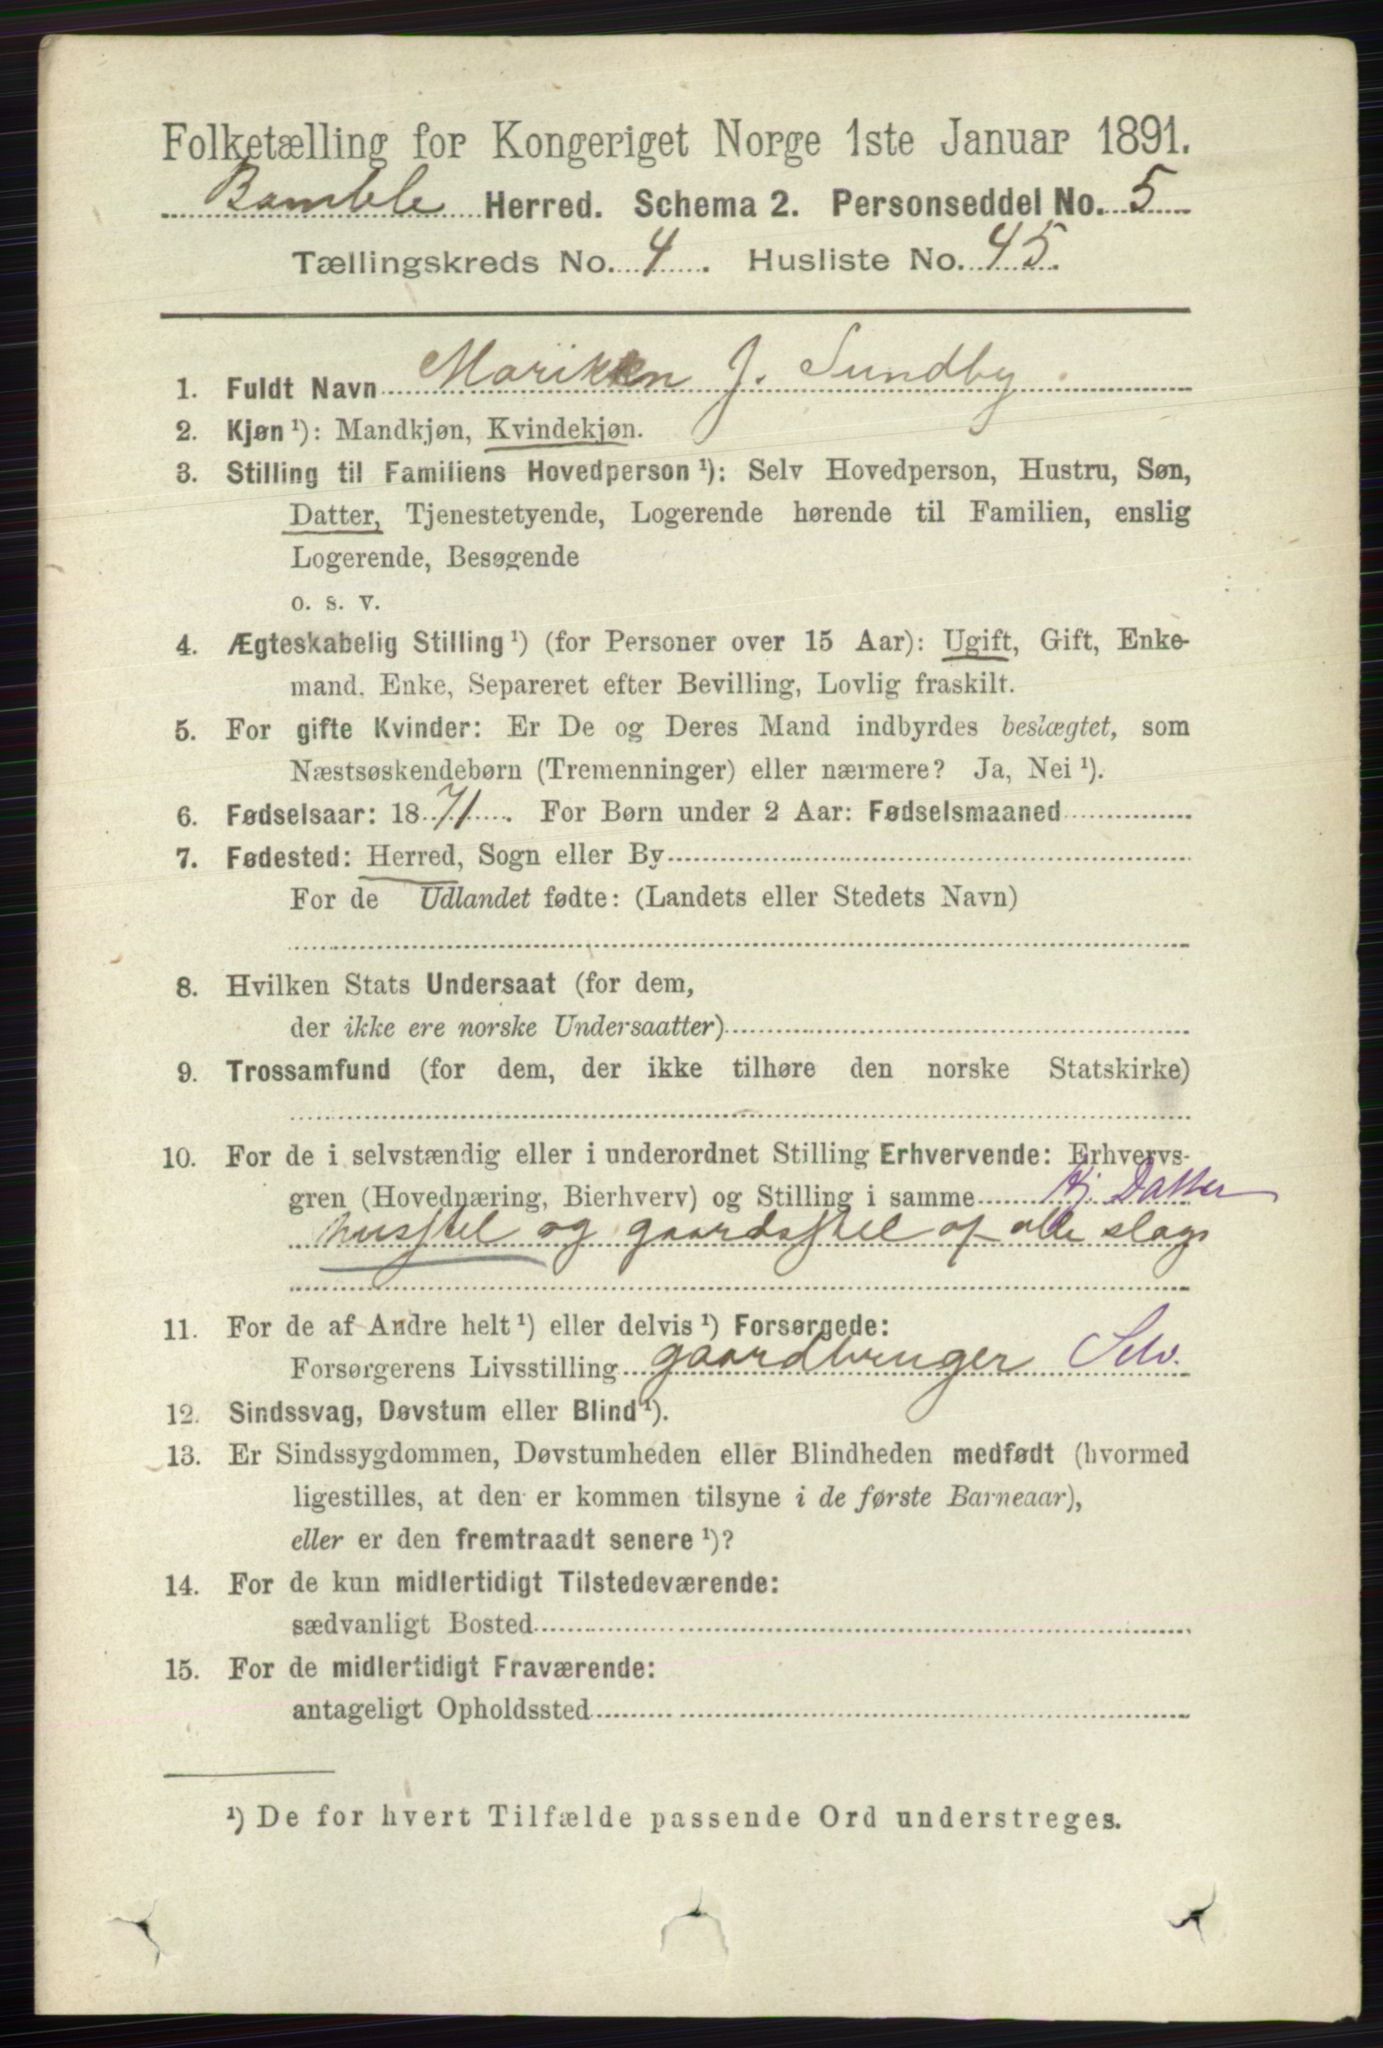 Folketælling for Kongeriget Norge 1ste Januar 1891.
Bamble Herred. Schema 2. Personseddel No. 5
Tællingskreds No. 4. Husliste No. 45.
1. Fuldt Navn Marikken J. Sundby
2. Kjøn ¹): Mandkjøn, Kvindekjøn.
3. Stilling til Familiens Hovedperson ¹): Selv Hovedperson, Hustru, Søn,
Datter, Tjenestetyende, Logerende hørende til Familien, enslig
Logerende, Besøgende
o. s. v.
4. Ægteskabelig Stilling ¹) (for Personer over 15 Aar): Ugift, Gift, Enke-
mand, Enke, Separeret efter Bevilling, Lovlig fraskilt.
5. For gifte Kvinder: Er De og Deres Mand indbyrdes beslægtet, som
Næstsøskendebørn (Tremenninger) eller nærmere? Ja, Nei ¹).
6. Fødselsaar: 1871. For Børn under 2 Aar: Fødselsmaaned
7. Fødested: Herred, Sogn eller By
For de Udlandet fødte: (Landets eller Stedets Navn)
8. Hvilken Stats Undersaat (for dem,
der ikke ere norske Undersaatter)
9. Trossamfund (for dem, der ikke tilhøre den norske Statskirke)
10. For de i selvstændig eller i underordnet Stilling Erhvervende: Erhvervs-
gren (Hovednæring, Bierhverv) og Stilling i samme Hj. Datter
husstel og gaardsstel af alle slags
11. For de af Andre helt ¹) eller delvis ¹) Forsørgede:
Forsørgerens Livsstilling gaardbruger Selv.
12. Sindssvag, Døvstum eller Blind ¹).
13. Er Sindssygdommen, Døvstumheden eller Blindheden medfødt (hvormed
ligestilles, at den er kommen tilsyne i de første Barneaar),
eller er den fremtraadt senere ¹)?
14. For de kun midlertidigt Tilstedeværende:
sædvanligt Bosted
15. For de midlertidigt Fraværende:
antageligt Opholdssted
¹) De for hvert Tilfælde passende Ord understreges.